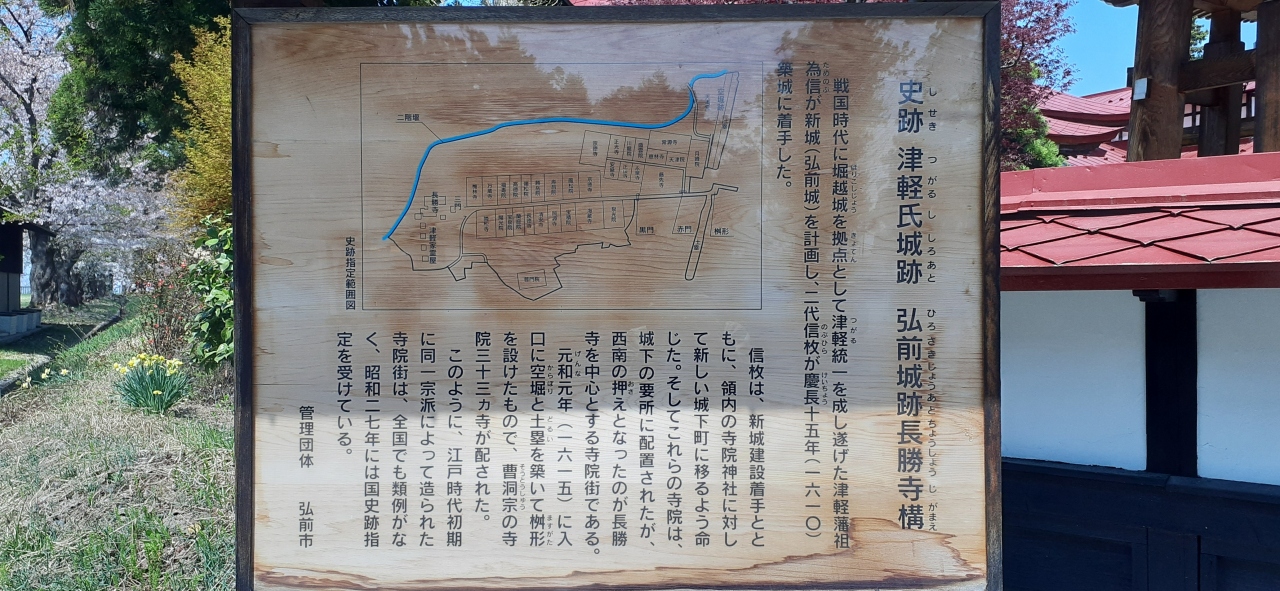 史跡 津軽氏城跡 弘前城跡長勝寺構
しせき つがるししろあと ひろさきじょうあとちょうしょうじがまえ
戦国時代に堀越城を拠点として津軽統一を成し遂げた津軽藩祖
為信が新城（弘前城）を計画し、二代信枚が慶長十五年（一六一〇）
築城に着手した。
信枚は、新城建設着手とと
もに、領内の寺院神社に対し
て新しい城下町に移るよう命
じた。そしてこれらの寺院は、
城下の要所に配置されたが、
西南の押えとなったのが長勝
寺を中心とする寺院街である。
元和元年（一六一五）に入
口に空堀と土塁を築いて桝形
を設けたもので、曹洞宗の寺
院三十三ヵ寺が配された。
このように、江戸時代初期
に同一宗派によって造られた
寺院街は、全国でも類例がな
く、昭和二七年には国史跡指
定を受けている。
管理団体 弘前市
史跡指定範囲図
二階堰
長勝寺
三門
津軽家霊屋
黒門
赤門
桝形